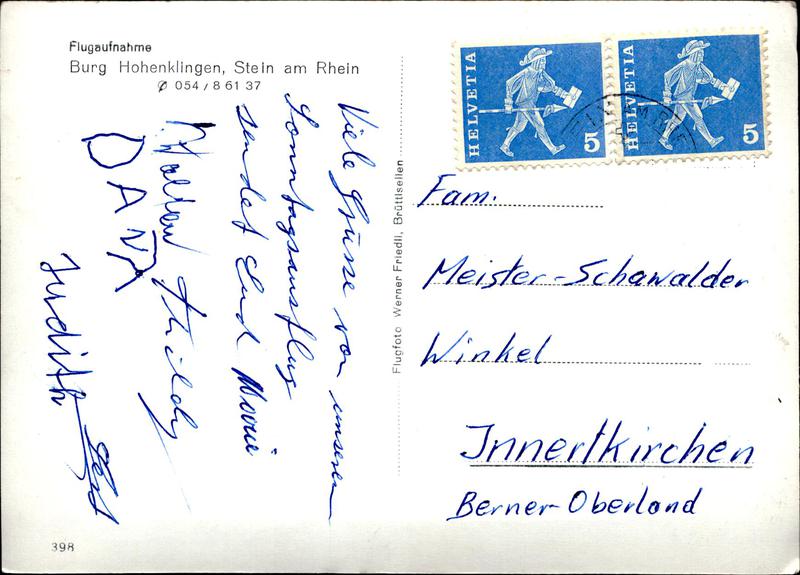 Flugaufnahme
Burg Hohenklingen, Stein am Rhein
054 / 8 61 37
Viele Grüsse von unserem
Sonntagsausflug
sendet Eud
Thildy
DANA
Judith
398
Flugfoto Werner Friedli, Brüttisellen
HELVETIA 5
HELVETIA 5
Fam.
Meister-Schawalder
Winkel
Innertkirchen
Berner-Oberland